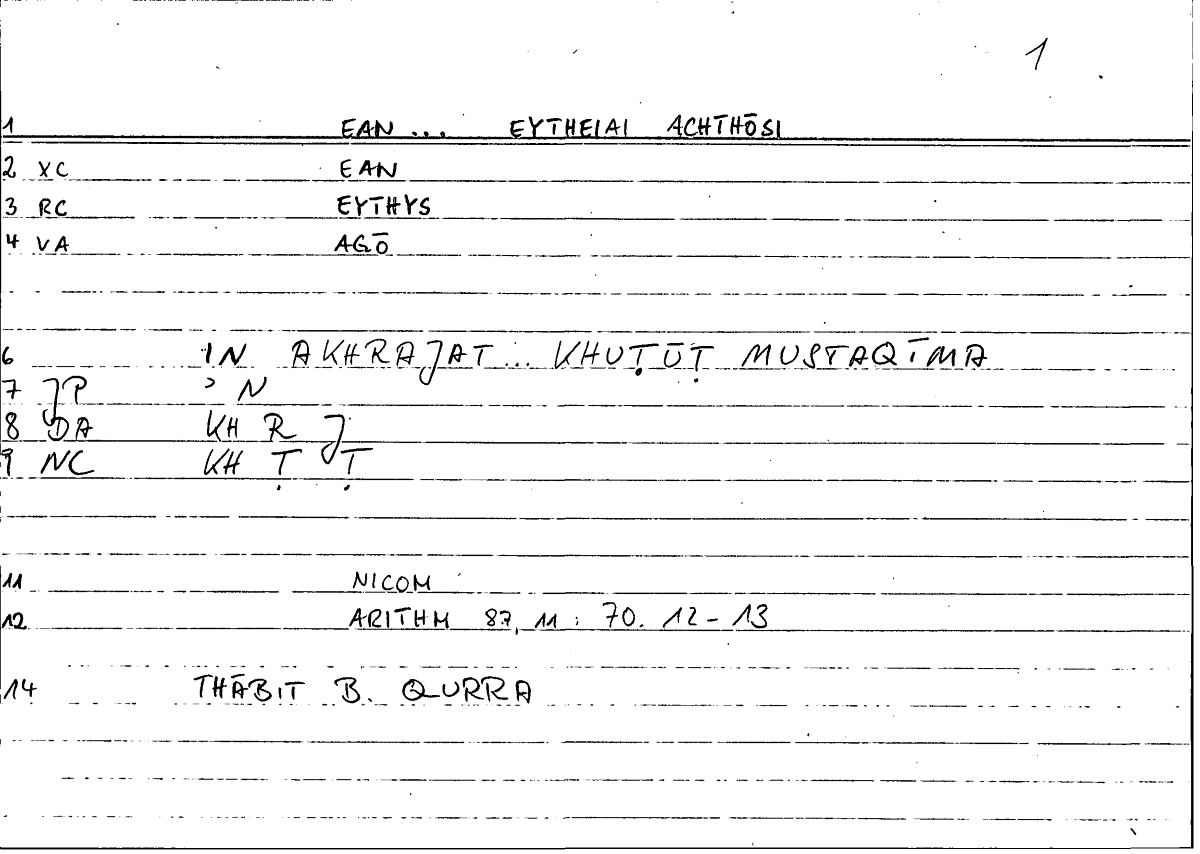 1
1 EAN ... EYTHEIAI ACHTHŌSI
2 XC EAN
3 RC EYTHYS
4 VA AGŌ
6 IN AKHRAJAT ... KHUṬŪṬ MUSTAQĪMA
7 JP ʾ N
8 DA KH R J
9 NC KH Ṭ Ṭ
11 NICOM
12 ARITHM 87, 11 : 70. 12 - 13
14 THĀBIT B. QURRA